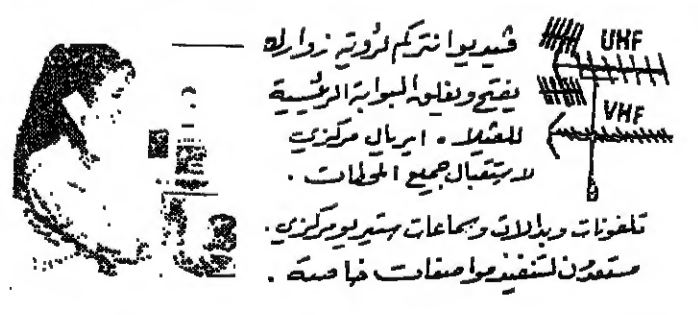 فيديو انتركم لرؤية زوارك
يفتح ويغلق البوابة الرئيسية
للفيلا . ايريال مركزي
لاستقبال جميع المحطات .
تلفونات وبدالات وسماعات ستيريو مركزي .
مستعدون لتنفيذ مواصفات خاصة .
UHF
VHF